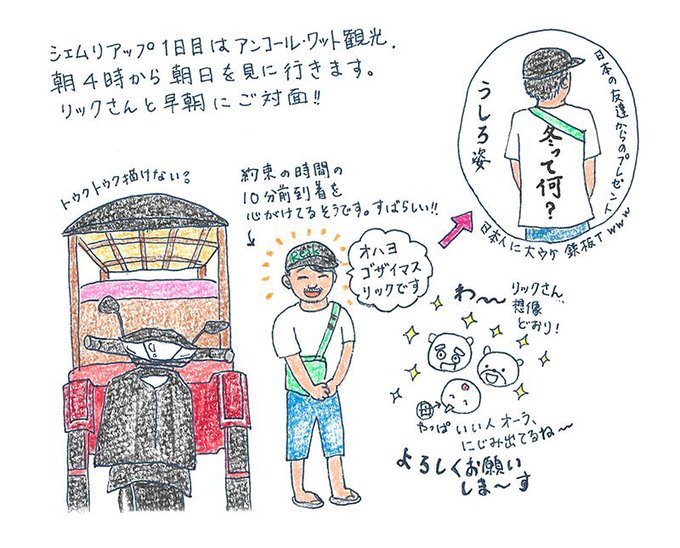 シェムリアップ1日目はアンコール・ワット観光.
朝4時から朝日を見に行きます。
リックさんと早朝にご対面!!
トゥクトゥク描けない〜
約束の時間の
10分前到着を
心がけてるそうです。すばらしい!!
オハヨ
ゴザイマス
リックです
うしろ姿
冬って何?
日本の友達からのプレゼント
日本人に大ウケ 鉄板T www
わ〜
リックさん
想像
どおり!
母
やっぱ いい人 オーラ、
にじみ出てるね〜
よろしくお願い
しま〜す